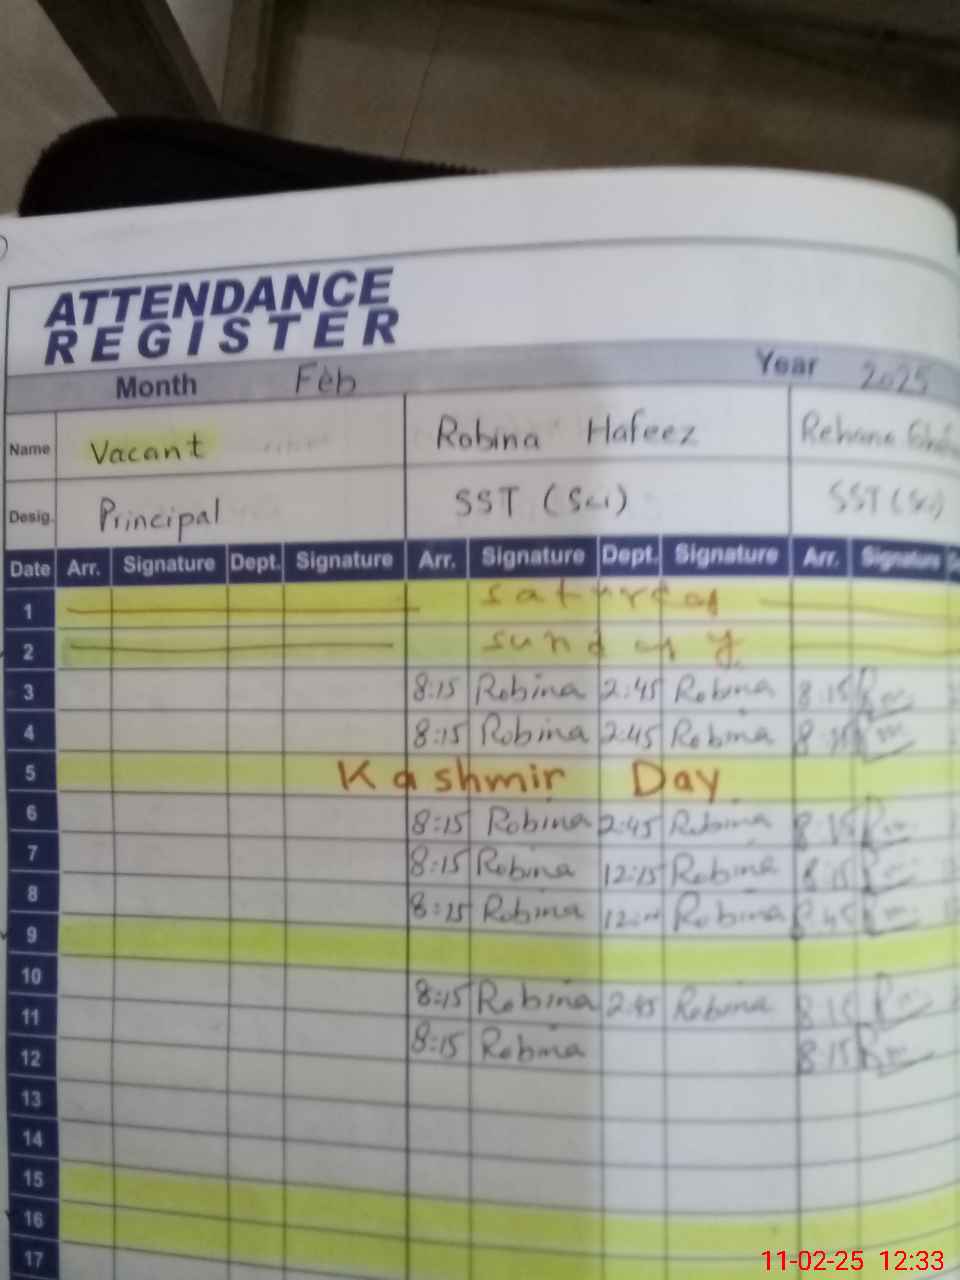 ATTENDANCE
REGISTER
Month Feb Year 2025
Name Vacant Robina Hafeez Rehana
Desig. Principal SST (Sci) SST (Sci)
Date Arr. Signature Dept. Signature Arr. Signature Dept. Signature Arr. Signature
1 saturday
2 sunday
3 8:15 Robina 2:45 Robina 8:15
4 8:15 Robina 2:45 Robina 8:15
5 Kashmir Day
6 8:15 Robina 2:45 Robina 8:15
7 8:15 Robina 12:15 Robina 8:15
8 8:15 Robina Robina
9
10 8:15 Robina 2:45 Robina 8:15
11 8:15 Robina 8:15
12
13
14
15
16
17
11-02-25 12:33